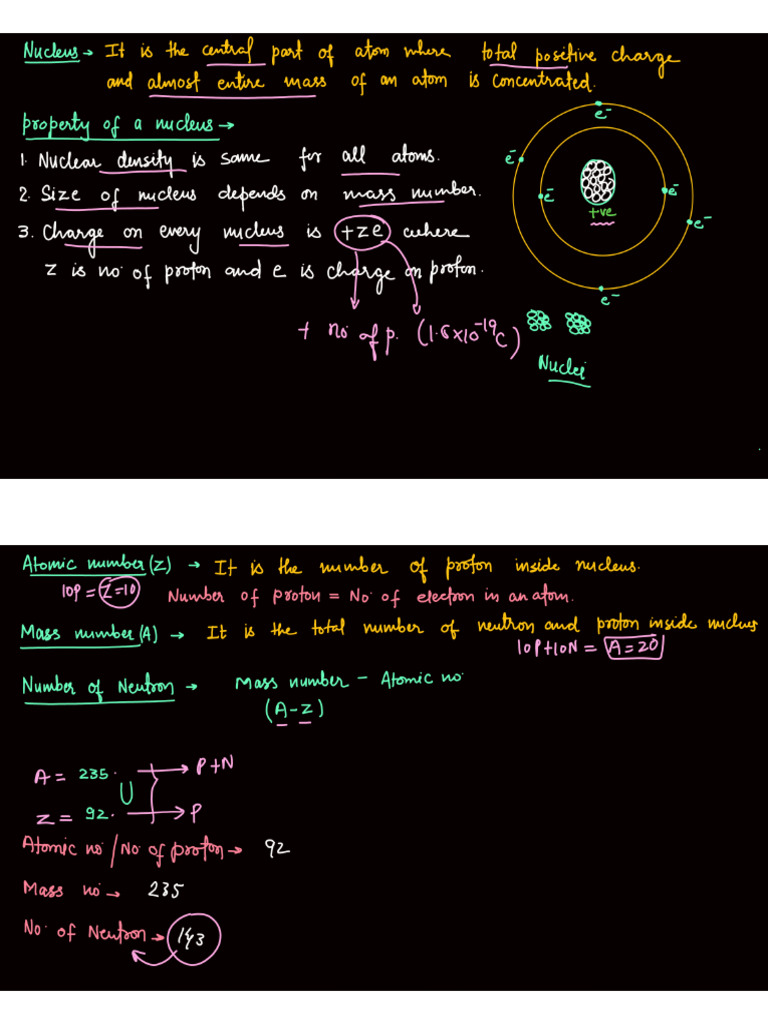 Nucleus → It is the central part of atom where total positive charge
and almost entire mass of an atom is concentrated.
property of a nucleus →
1. Nuclear density is same for all atoms.
2. Size of nucleus depends on mass number.
3. Charge on every nucleus is +ze where
z is no. of proton and e is charge on proton.
+ no. of p. (1.6×10⁻¹⁹C)
e⁻
e⁻
e⁻
e⁻
+ve
e⁻
e⁻
Nuclei
Atomic number (z) → It is the number of proton inside nucleus.
10P = Z=10 Number of proton = No. of electron in an atom.
Mass number (A) → It is the total number of neutron and proton inside nucleus
10P+10N = A=20
Number of Neutron → Mass number - Atomic no.
(A-z)
A = 235. → P+N
U
Z = 92. → P
Atomic no / No of proton → 92
Mass no → 235
No. of Neutron → 143